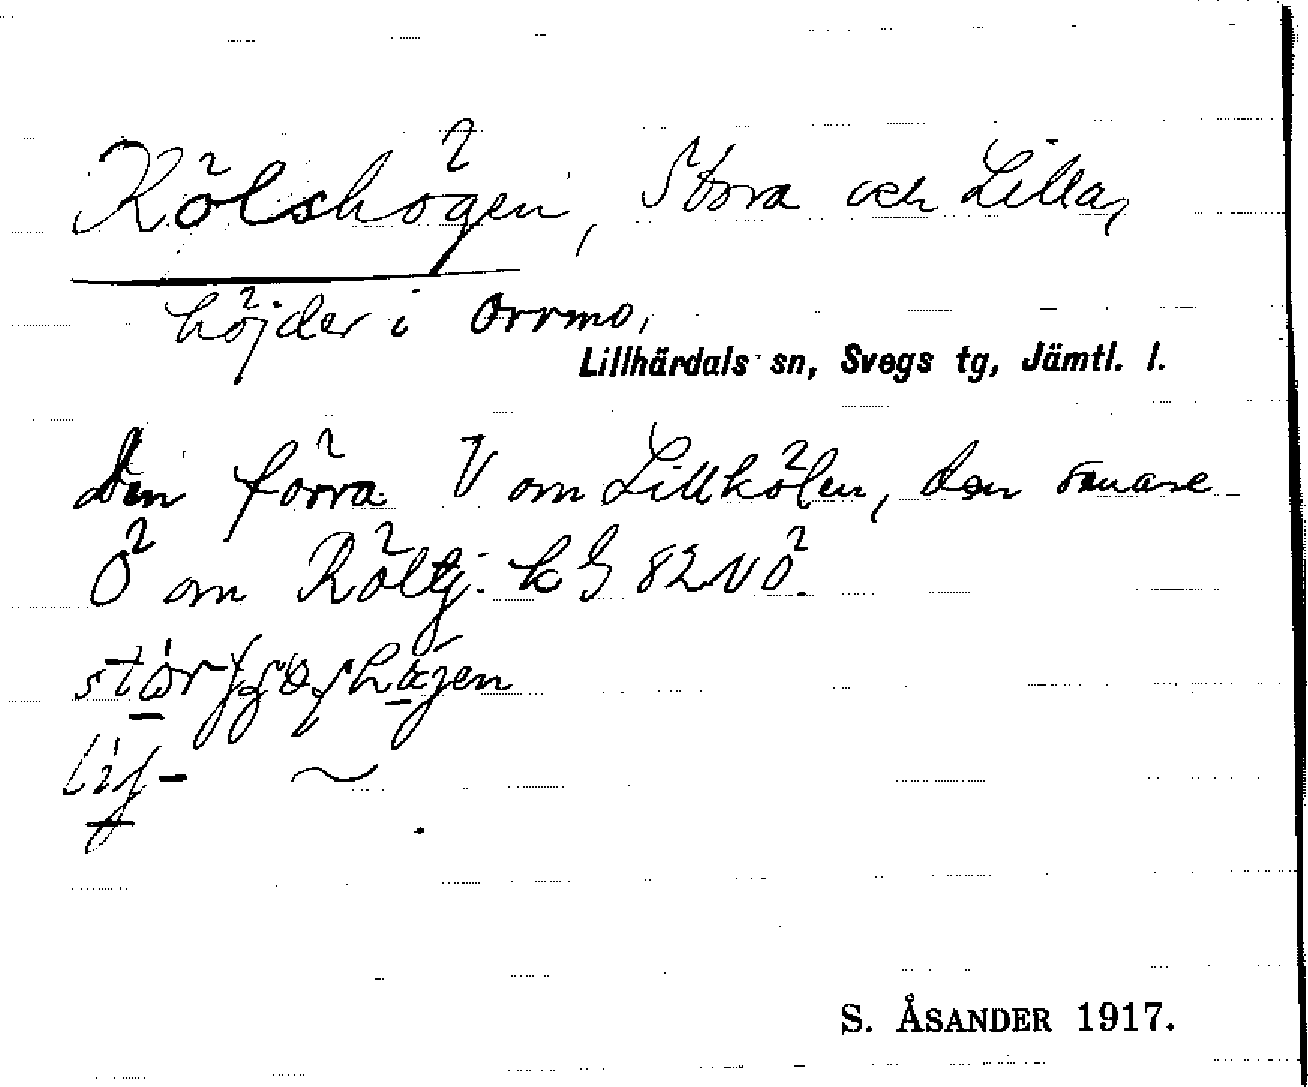 Kölshögen, Stora och Lilla,
höjder i Orrmo,
Lillhärdals sn, Svegs tg, Jämtl. l.
Den förra V om Lillkölen, den senare
Ö om Röltj. k G 82 NÖ.
S. ÅSANDER 1917.